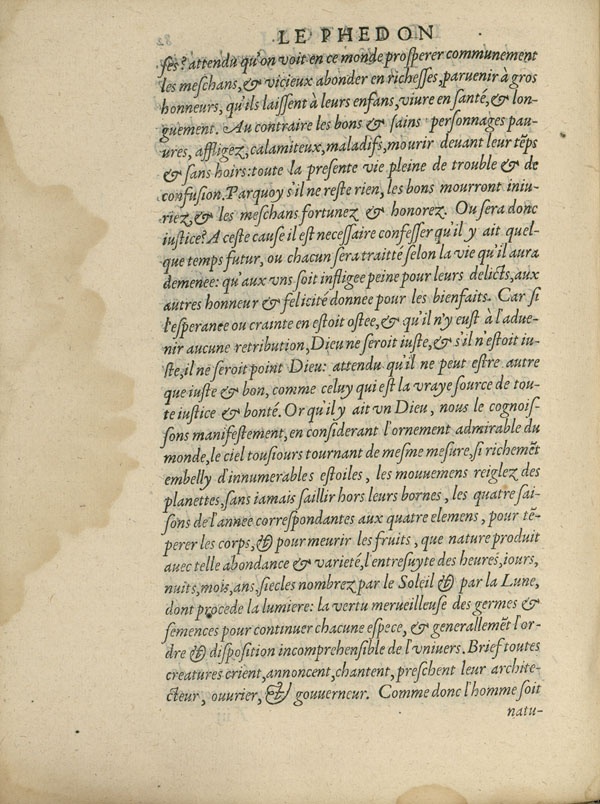 LE PHEDON
ſes? attendu qu'on voit en ce monde proſperer communement
les meſchans, & vicieux abonder en richeſſes, paruenir à gros
honneurs, qu'ils laiſſent à leurs enfans, viure en ſanté, & lon-
guement. Au contraire les bons & ſains perſonnages pau-
ures, affligez, calamiteux, maladifs, mourir deuant leur tẽps
& ſans hoirs: toute la preſente vie pleine de trouble & de
confuſion. Parquoy s'il ne reſte rien, les bons mourront iniu-
riez, & les meſchans fortunez & honorez. Ou ſera donc
iuſtice? A ceſte cauſe il eſt neceſſaire confeſſer qu'il y ait quel-
que temps futur, ou chacun ſera traitté ſelon la vie qu'il aura
demenee: qu'aux vns ſoit infligee peine pour leurs delicts, aux
autres honneur & felicité donnee pour les bienfaits. Car ſi
l'eſperance ou crainte en eſtoit oſtee, & qu'il n'y euſt à l'adue-
nir aucune retribution, Dieu ne ſeroit iuſte, & s'il n'eſtoit iu-
ſte, il ne ſeroit point Dieu: attendu qu'il ne peut eſtre autre
que iuſte & bon, comme celuy qui eſt la vraye ſource de tou-
te iuſtice & bonté. Or qu'il y ait vn Dieu, nous le cognoiſ-
ſons manifeſtement, en conſiderant l'ornement admirable du
monde, le ciel touſiours tournant de meſme meſure, ſi richemẽt
embelly d'innumerables eſtoiles, les mouuemens reiglez des
planettes, ſans iamais ſaillir hors leurs bornes, les quatre ſai-
ſons de l'annee correſpondantes aux quatre elemens, pour tẽ-
perer les corps, & pour meurir les fruits, que nature produit
auec telle abondance & varieté, l'entreſuyte des heures, iours,
nuits, mois, ans, ſiecles nombrez par le Soleil & par la Lune,
dont procede la lumiere: la vertu merueilleuſe des germes &
ſemences pour continuer chacune eſpece, & generallemẽt l'or-
dre & diſpoſition incomprehenſible de l'vniuers. Brief toutes
creatures crient, annoncent, chantent, preſchent leur archite-
cteur, ouurier, & gouuerneur. Comme donc l'homme ſoit
natu-